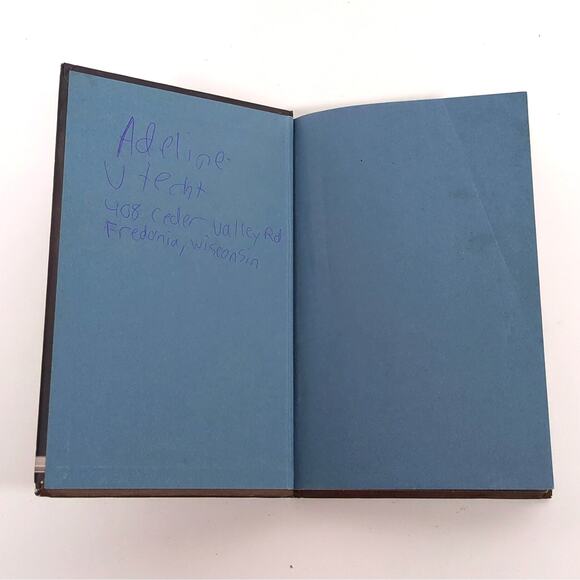 Adeline
Utecht
408 Ceder Valley Rd
Fredonia, Wisconsin